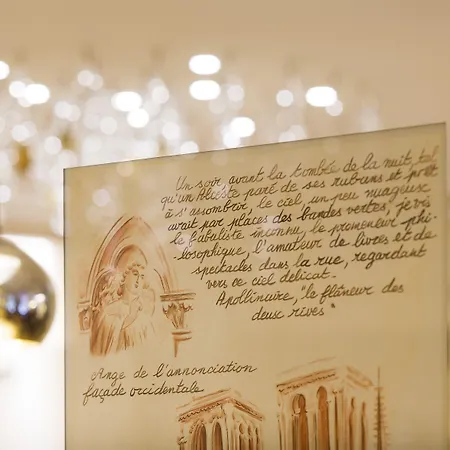 Un soir, avant la tombée de la nuit, tel
qu'un Alceste paré de ses rubans et prêt
à s'assombrir, le ciel, un peu nuageux
avait par places des bandes vertes, je vis
le fabuliste inconnu, le promeneur phi-
losophique, l'amateur de livres et de
spectacles dans la rue, regardant
vers ce ciel délicat.
Apollinaire, "le flâneur des
deux rives"
Ange de l'annonciation
façade occidentale